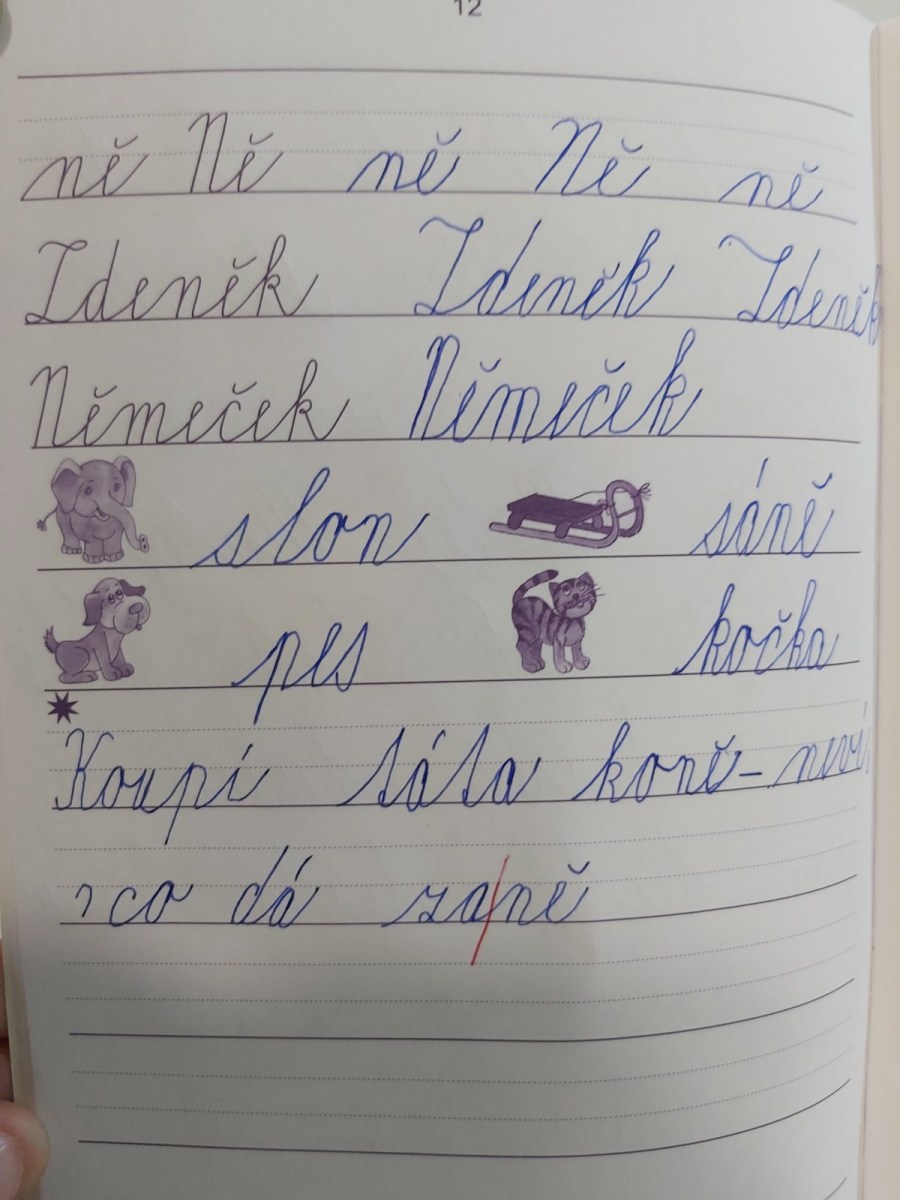 12
ně Ně ně Ně ně
Zdeněk Zdeněk Zdeněk
Němeček Němeček
slon sáně
pes kočka
Koupí táta koně - neví,
, co dá za/ně